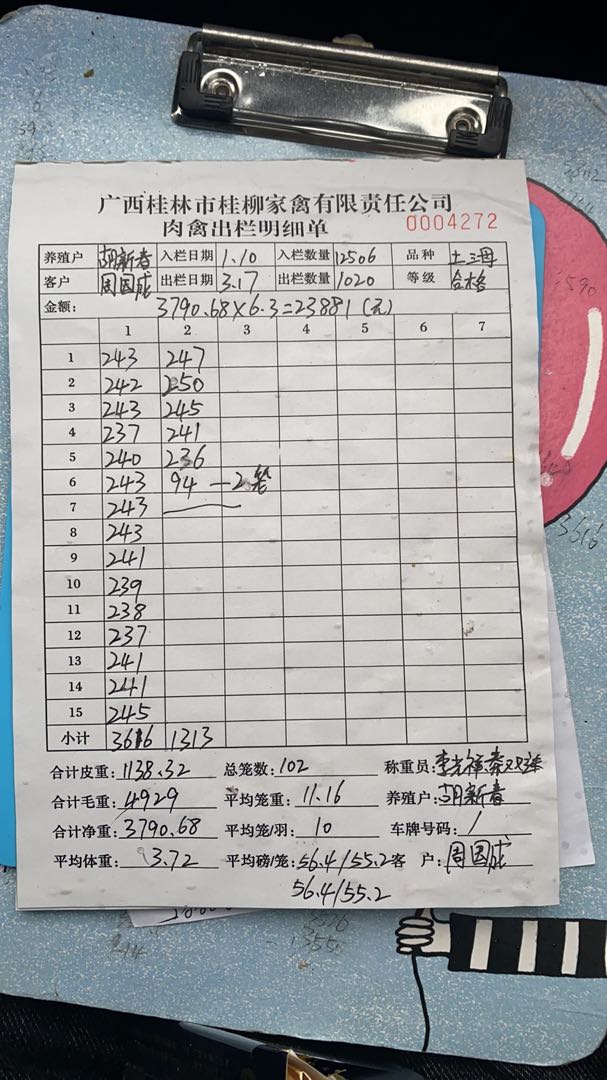 广西桂林市桂柳家禽有限责任公司
肉禽出栏明细单 0004272
养殖户 胡新春 入栏日期 1.10 入栏数量 12506 品种 土三母
客户 周国成 出栏日期 3.17 出栏数量 1020 等级 合格
金额: 3790.68×6.3=23881(元)
1 2 3 4 5 6 7
1 243 247
2 242 250
3 243 245
4 237 241
5 240 236
6 243 94 —2笼
7 243
8 243
9 241
10 239
11 238
12 237
13 241
14 241
15 245
小计 3616 1313
合计皮重: 1138.32 总笼数: 102 称重员:
合计毛重: 4929 平均笼重: 11.16 养殖户: 胡新春
合计净重: 3790.68 平均笼/羽: 10 车牌号码: /
平均体重: 3.72 平均磅/笼: 56.4/55.2 客 户: 周国成
56.4/55.2